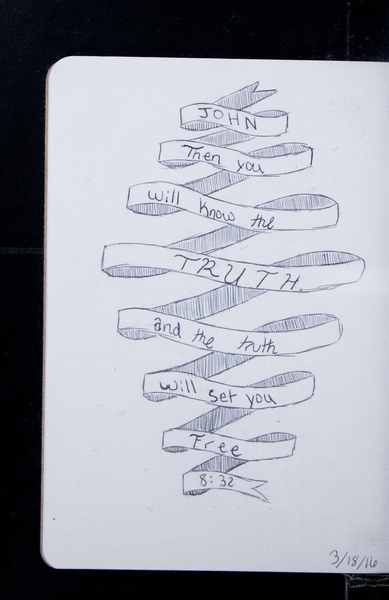 JOHN
Then you
will know the
TRUTH.
and the truth
will set you
Free
8:32
3/18/16